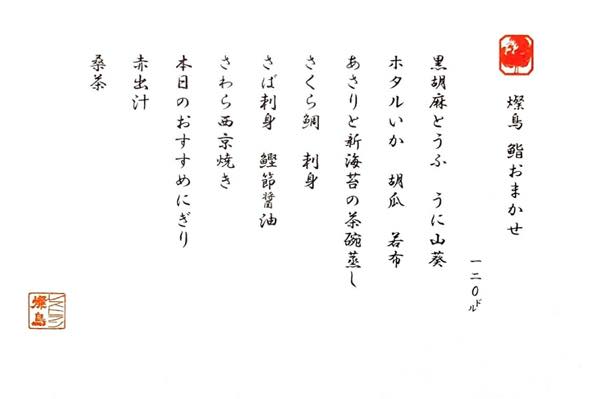 燦鳥 鮨おまかせ
一二〇ドル
黒胡麻とうふ うに山葵
ホタルいか 胡瓜 若布
あさりと新海苔の茶碗蒸し
さくら鯛 刺身
さば刺身 鰹節醤油
さわら西京焼き
本日のおすすめにぎり
赤出汁
桑茶
燦鳥